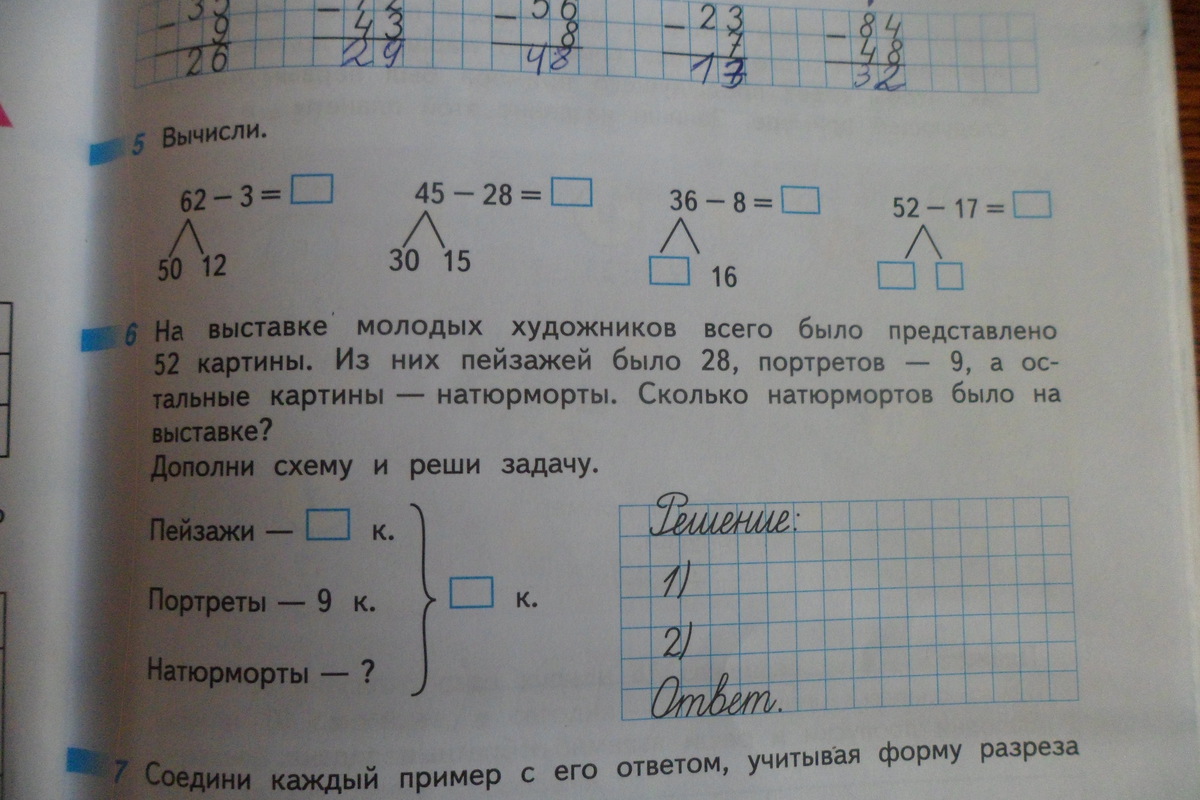 − 35 − 72 − 56 − 23 − 84
9 43 8 7 48
26 29 48 1 32
5 Вычисли.
62 − 3 = 45 − 28 = 36 − 8 = 52 − 17 =
50 12 30 15 16
6 На выставке молодых художников всего было представлено
52 картины. Из них пейзажей было 28, портретов — 9, а ос-
тальные картины — натюрморты. Сколько натюрмортов было на
выставке?
Дополни схему и реши задачу.
Пейзажи — к.
Портреты — 9 к.
Натюрморты — ?
к.
Решение:
1)
2)
Ответ.
7 Соедини каждый пример с его ответом, учитывая форму разреза